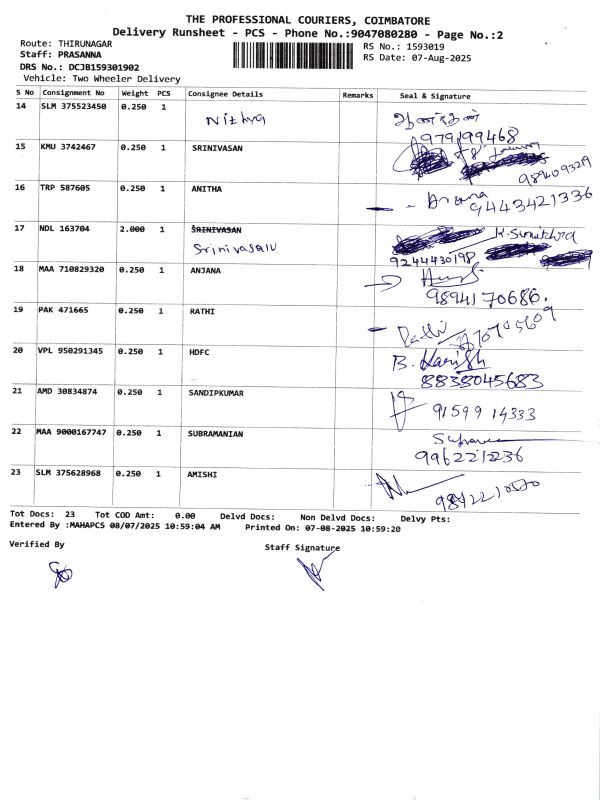 THE PROFESSIONAL COURIERS, COIMBATORE
Delivery Runsheet - PCS - Phone No.:9047080280 - Page No.:2
Route: THIRUNAGAR
Staff: PRASANNA
DRS No.: DCJB159301902
Vehicle: Two Wheeler Delivery
RS No.: 1593019
RS Date: 07-Aug-2025
S No Consignment No Weight PCS Consignee Details Remarks Seal & Signature
14 SLM 375523450 0.250 1 Nithya
979199468
15 KMU 3742467 0.250 1 SRINIVASAN
16 TRP 587605 0.250 1 ANITHA
9443421336
17 NDL 163704 2.000 1 SRINIVASAN
Srinivasalu
9244430198
18 MAA 710829320 0.250 1 ANJANA
9894170686.
19 PAK 471665 0.250 1 RATHI Rathi
20 VPL 950291345 0.250 1 HDFC B. Harish
8838045683
21 AMD 30834874 0.250 1 SANDIPKUMAR
9159914333
22 MAA 9000167747 0.250 1 SUBRAMANIAN
9962212236
23 SLM 375628968 0.250 1 AMISHI
Tot Docs: 23 Tot COD Amt: 0.00 Delvd Docs: Non Delvd Docs: Delvy Pts:
Entered By :MAHAPCS 08/07/2025 10:59:04 AM Printed On: 07-08-2025 10:59:20
Verified By
Staff Signature